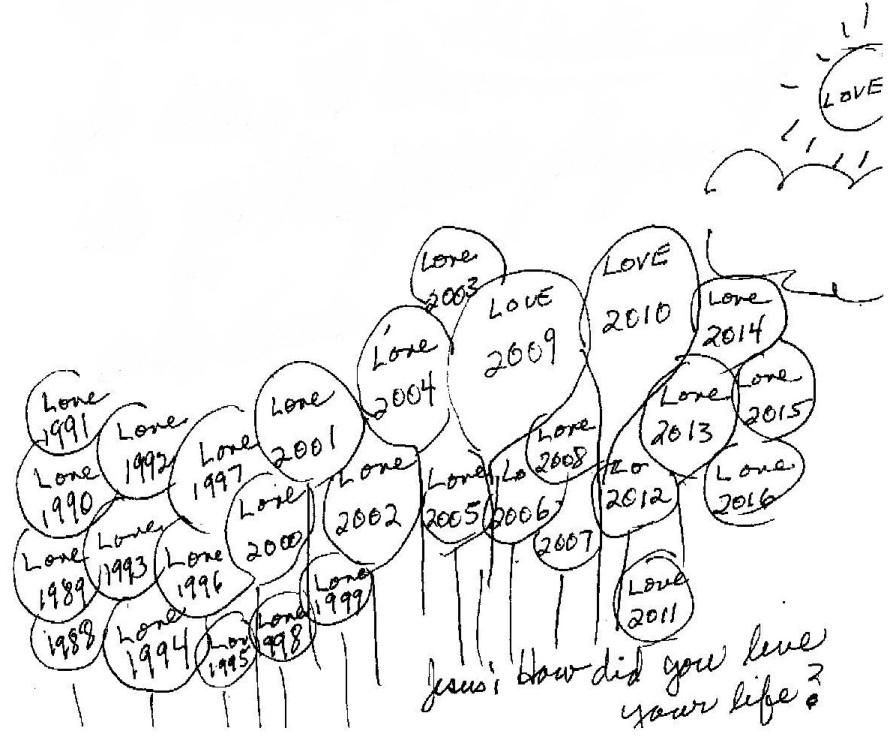 LOVE
Love
2003
LOVE
2009
LOVE
2010
Love
2014
Love
2004
Love
2013
Love
2015
Love
1991
Love
1992
Love
1997
Love
2001
Love
2008
Love
2016
Love
1990
Love
2000
Love
2002
Love
2005
Lo
2006
Lo
2012
2007
Love
1989
Love
1993
Love
1996
Love
1999
Love
2011
1988
Love
1994
Lov
1995
Love
1998
Jesus: How did you live
your life?